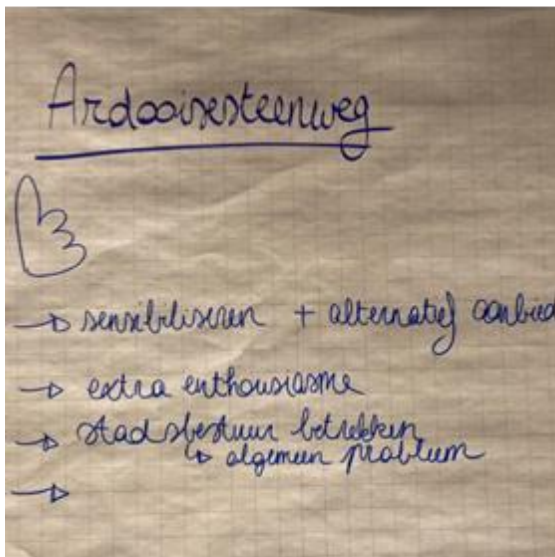 Ardooisesteenweg
→ sensibiliseren + alternatief aanbied
→ extra enthousiasme
→ stadsbestuur betrekken
↳ algemeen probleem
→